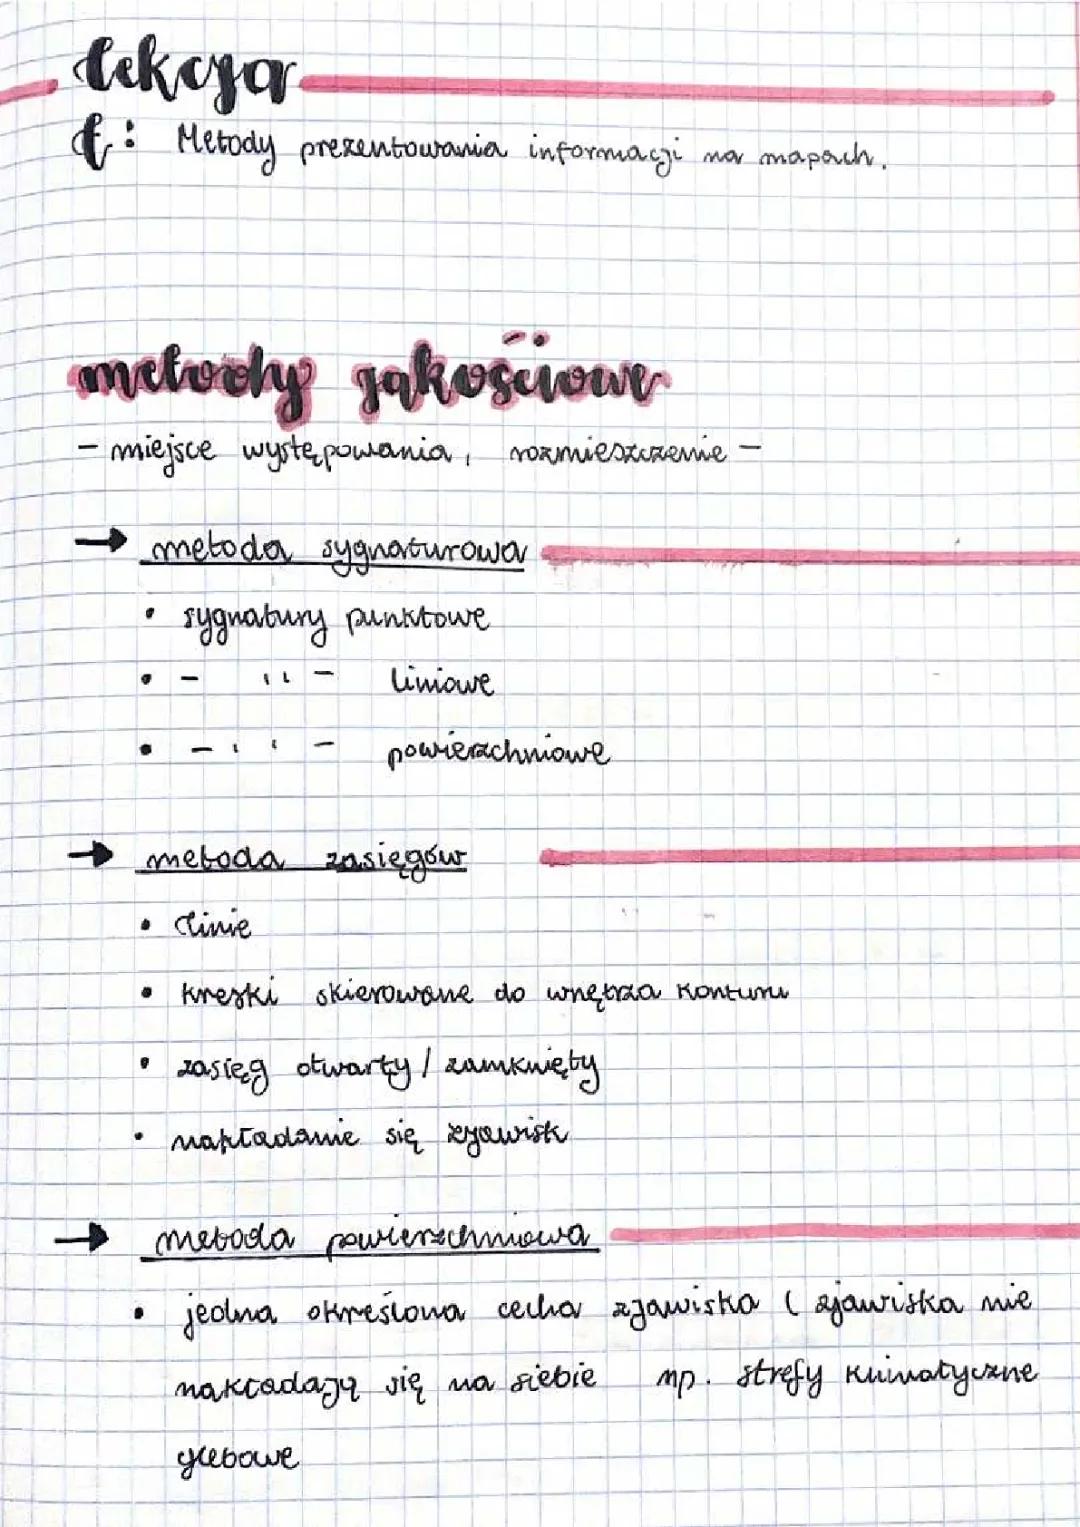 Lekcja
t: Metody prezentowania informacji na mapach.
metody jakościowe
- miejsce występowania, rozmieszczenie -
→ metoda sygnaturowa
• sygnatury punktowe
• - ıı - liniowe
• - ıı - powierzchniowe
→ metoda zasięgów
• linie
• kreski skierowane do wnętrza konturu
• zasięg otwarty / zamknięty
• nakładanie się zjawisk
→ metoda powierzchniowa
• jedna określona cecha zjawiska ( zjawiska nie
nakładają się na siebie np. strefy klimatyczne
glebowe